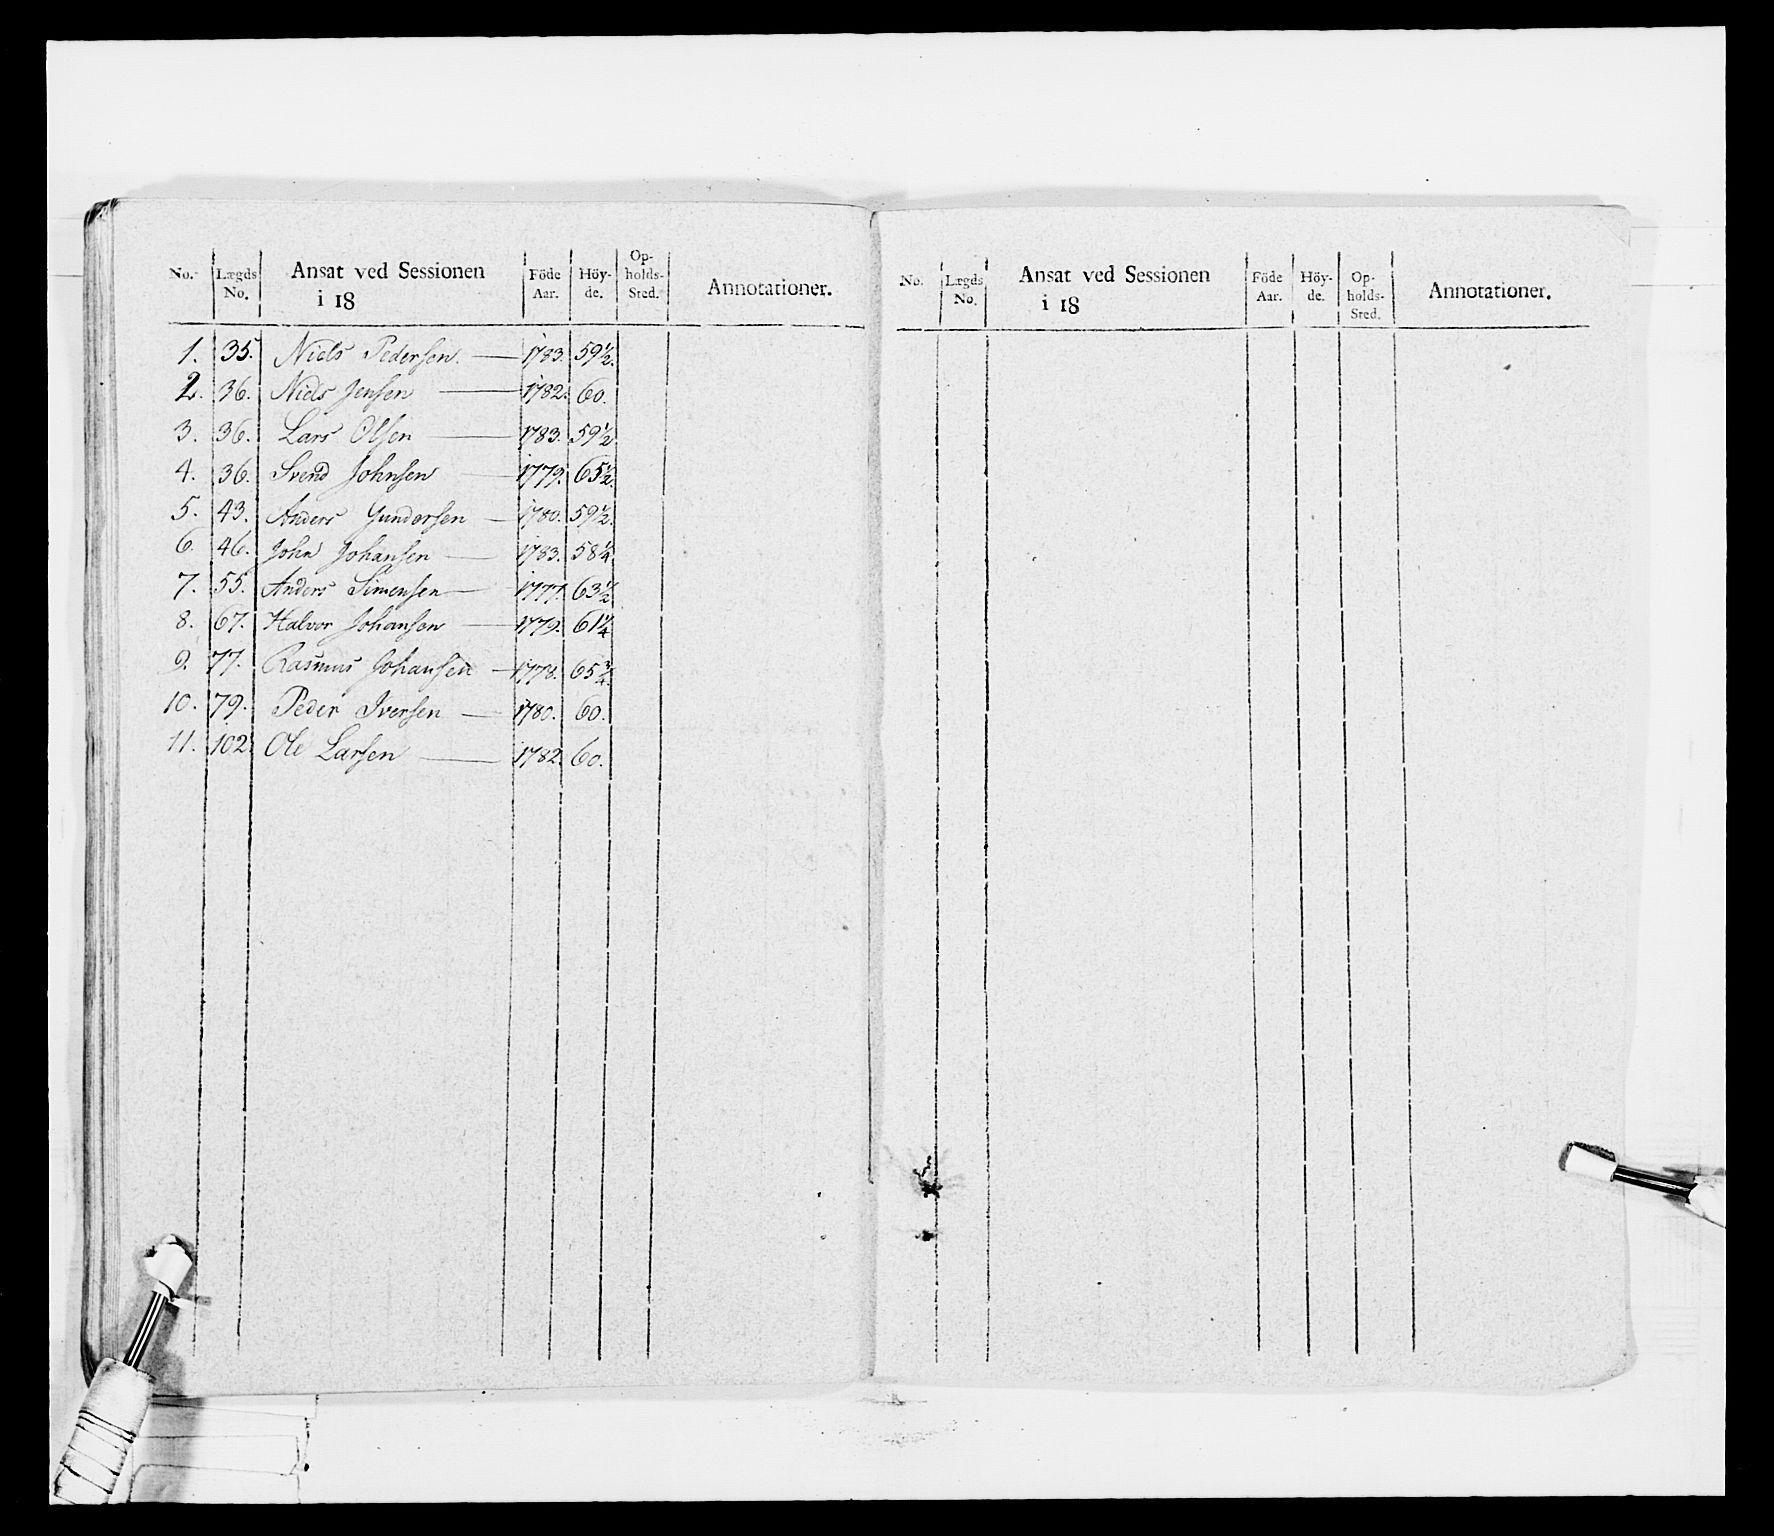 No. Lægds No. Ansat ved Sessionen i 18 Föde Aar. Höy- de. Op- holds- Sted. Annotationer.
1. 35. Niels Pedersen. 1783. 59½.
2. 36. Niels Jensen 1782. 60.
3. 36. Lars Olsen 1783. 59½
4. 36. Svend Johnsen 1779. 65½.
5. 43. Anders Gundersen 1780. 59½.
6. 46. John Johansen 1783. 58¼.
7. 55. Anders Simensen 1777. 63½
8. 67. Halvor Johansen 1779. 61¼
9. 77. Rasmus Johansen 1778. 65¾.
10. 79. Peder Iversen 1780. 60.
11. 102. Ole Larsen 1782. 60.
No. Lægds No. Ansat ved Sessionen i 18 Föde Aar. Höy- de. Op- holds- Sted. Annotationer.